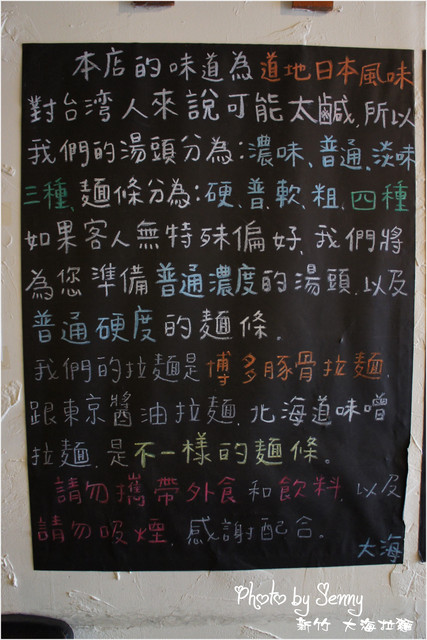 本店的味道為道地日本風味
對台湾人來說可能太鹹，所以
我們的湯頭分為：濃味、普通、淡味
三種、麵條分為：硬、普、軟、粗、四種
如果客人無特殊偏好，我們將
為您準備普通濃度的湯頭，以及
普通硬度的麵條。
我們的拉麵是博多豚骨拉麵，
跟東京醬油拉麵，北海道味噌
拉麵，是不一樣的麵條。
請勿攜帶外食和飲料，以及
請勿吸煙，感謝配合。
大海
Photo by Senny
新竹 大海拉麵